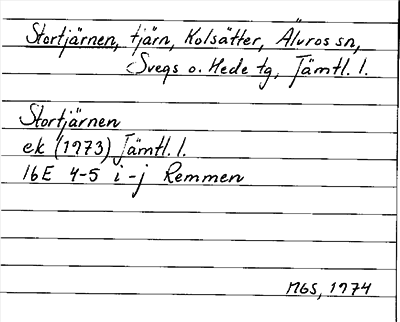 Stortjärnen, tjärn, Kolsätter, Älvros sn,
Svegs o. Hede tg, Jämtl. l.
Stortjärnen
ek (1973) Jämtl. l.
16E 4-5 i-j Remmen
MGS, 1974